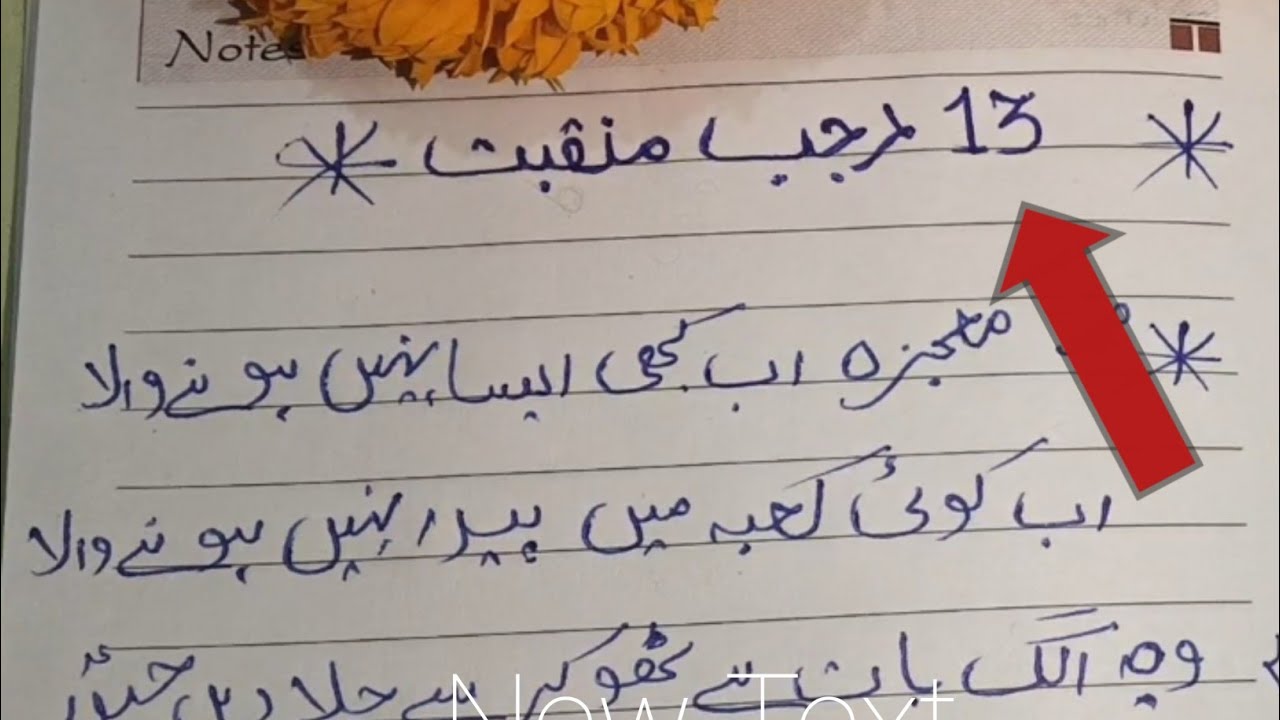 Notes
13 رجب منقبت
معجزہ اب کبھی ایسا نہیں ہونے والا
اب کوئی کعبہ میں پیدا نہیں ہونے والا
وہ الگ بات ہے ٹھوکر سے جلا دیں حیدرؑ
New Text